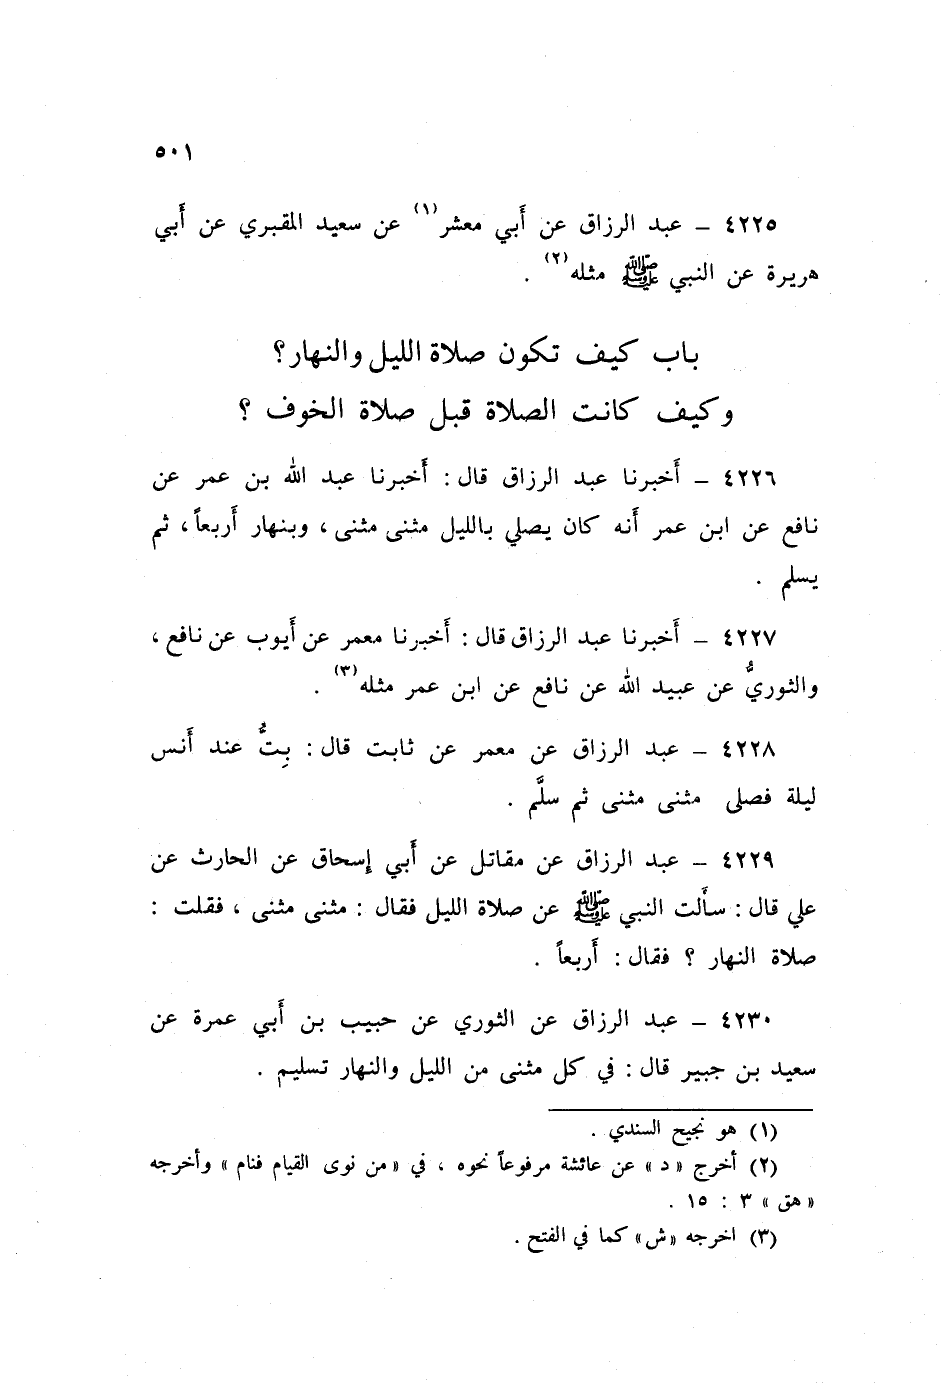 ٥٠١
٤٢٢٥ – عبد الرزاق عن أَبي معشر(١) عن سعيد المقبري عن أَبي
هريرة عن النبي ﷺ مثله(٢) .
باب كيف تكون صلاة الليل والنهار؟
وكيف كانت الصلاة قبل صلاة الخوف ؟
٤٢٢٦ – أَخبرنا عبد الرزاق قال : أَخبرنا عبد الله بن عمر عن
نافع عن ابن عمر أَنه كان يصلي بالليل مثنى مثنى ، وبنهار أَربعاً ، ثم
يسلم .
٤٢٢٧ – أَخبرنا عبد الرزاق قال : أَخبرنا معمر عن أَيوب عن نافع ،
والثوريُّ عن عبيد الله عن نافع عن ابن عمر مثله(٣) .
٤٢٢٨ – عبد الرزاق عن معمر عن ثابت قال : بِتُّ عند أَنس
ليلة فصلى مثنى مثنى ثم سلَّم .
٤٢٢٩ – عبد الرزاق عن مقاتل عن أَبي إِسحاق عن الحارث عن
علي قال : سأَلت النبي ﷺ عن صلاة الليل فقال : مثنى مثنى ، فقلت :
صلاة النهار ؟ فقال : أَربعاً .
٤٢٣٠ – عبد الرزاق عن الثوري عن حبيب بن أَبي عمرة عن
سعيد بن جبير قال : في كل مثنى من الليل والنهار تسليم .
(١) هو نجيح السندي .
(٢) أخرج «د» عن عائشة مرفوعاً نحوه ، في «من نوى القيام فنام» وأخرجه
«هق» ٣ : ١٥ .
(٣) اخرجه «ش» كما في الفتح .